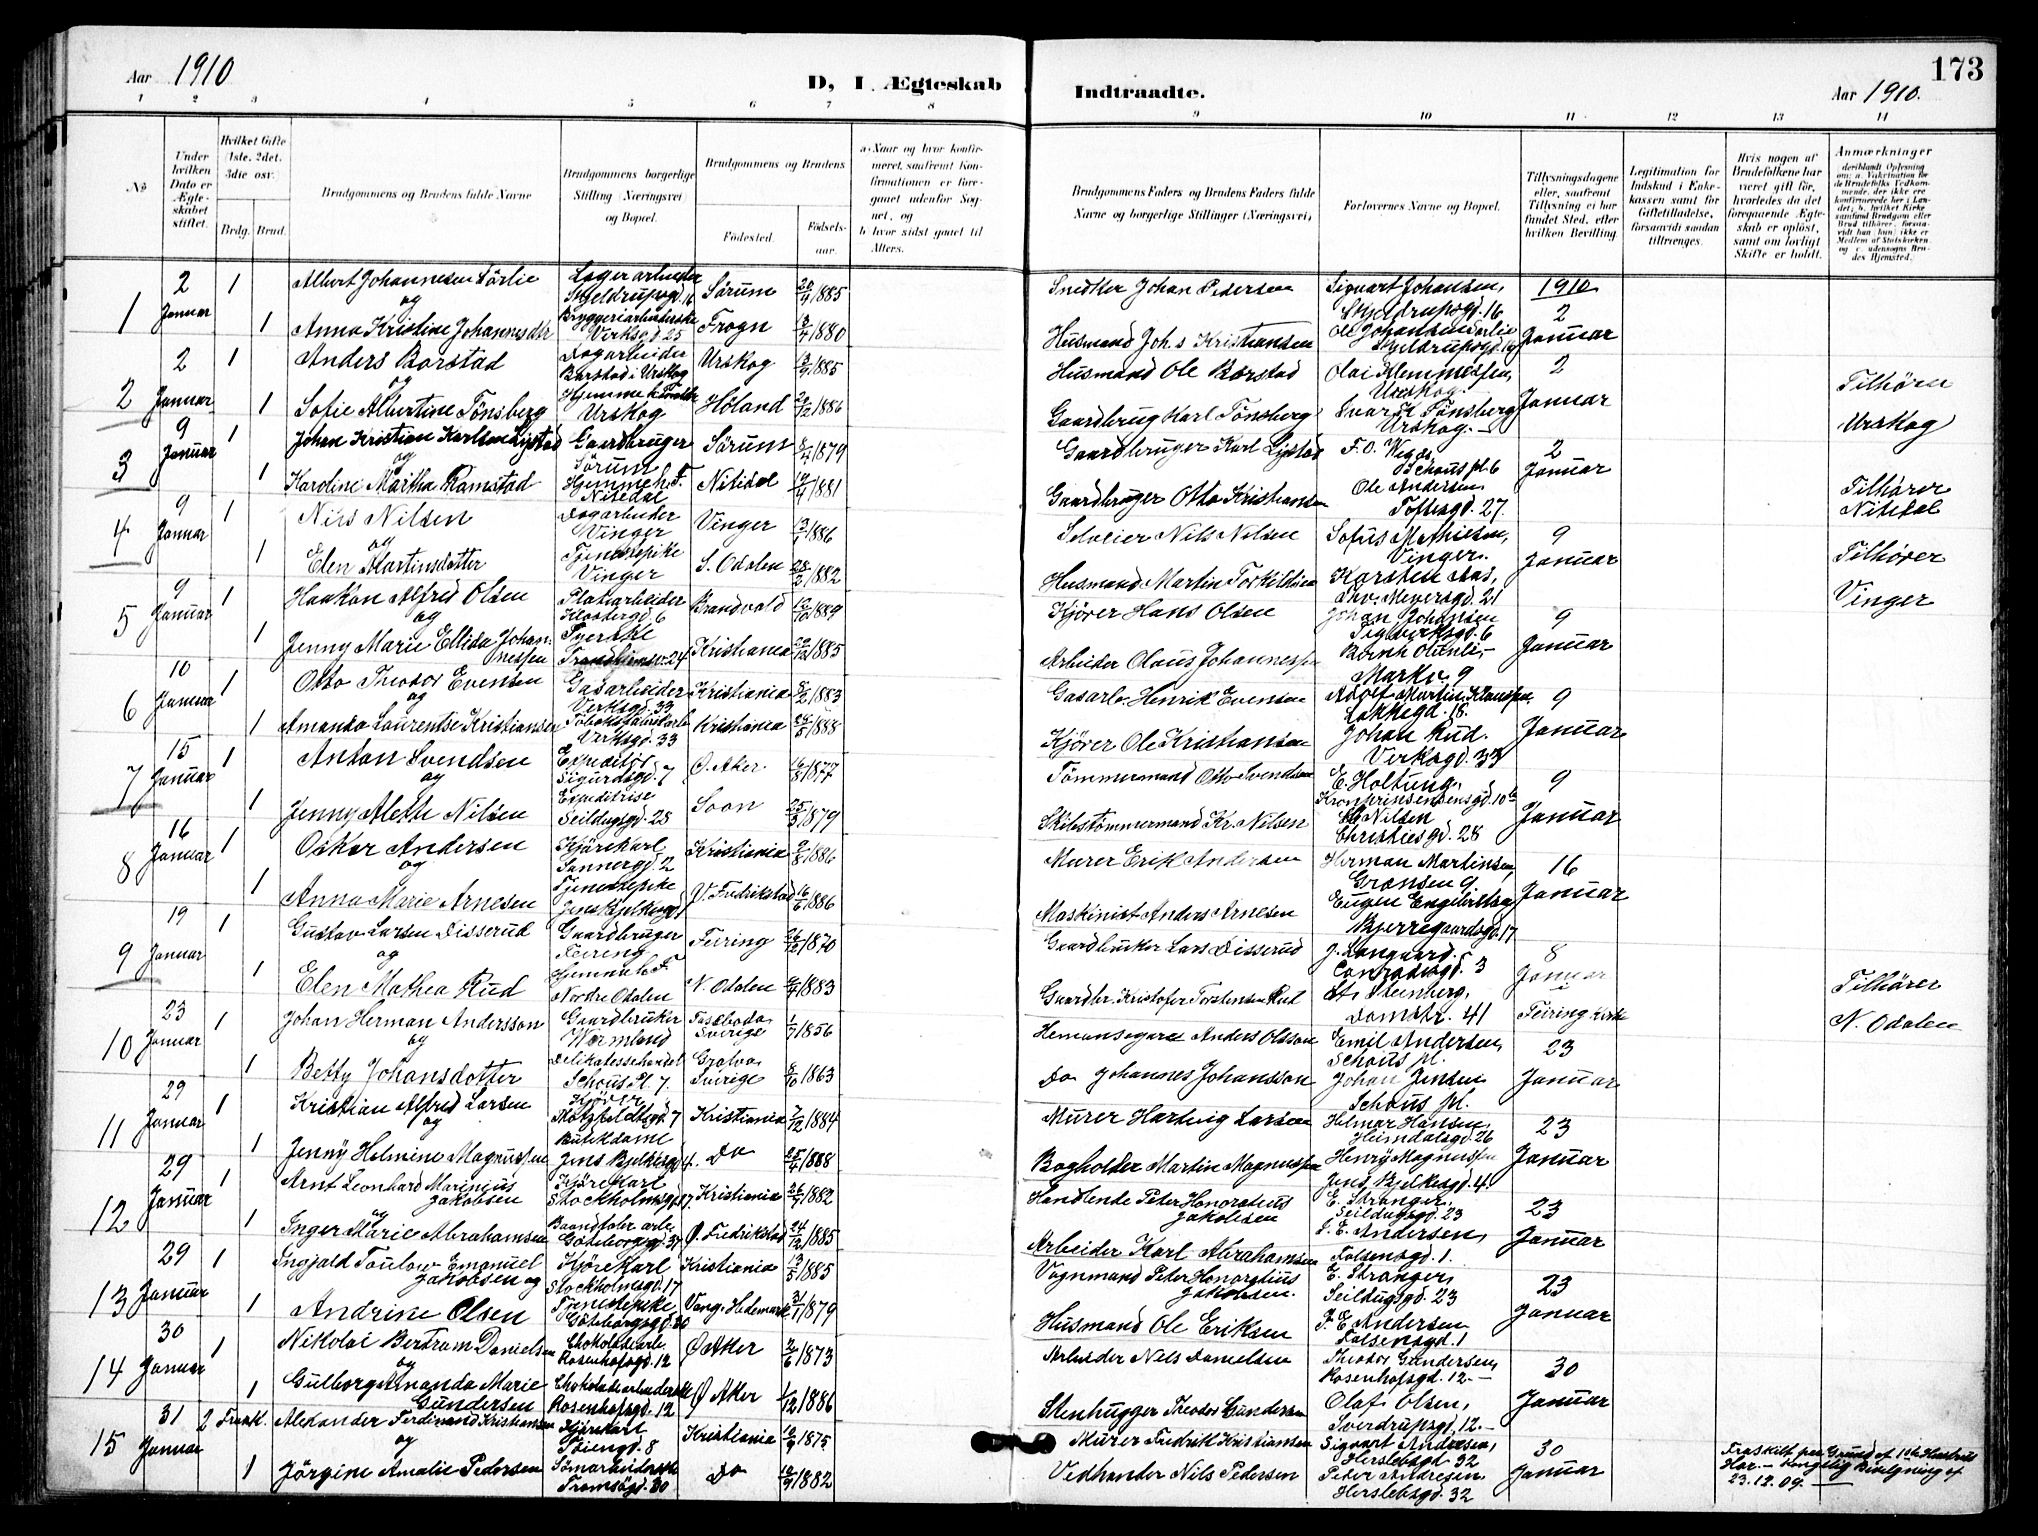 Aar 1910
D, I. Ægteskab
Indtraadte.
173
Aar 1910.
1 2 3 4 5 6 7 8 9 10 11 12 13 14
No
Under hvilken Dato er Ægteskabet stiftet.
Hvilket Gifte (1ste, 2det, 3die osv.
Brdg. Brud.
Brudgommens og Brudens fulde Navne
Brudgommens borgerlige Stilling (Næringsvei) og Bopæl.
Brudgommens og Brudens
Fødested.
Fødselsaar.
a. Naar og hvor konfirmeret, saafremt Konfirmationen er foregaaet udenfor Sognet, og
b. hvor sidst gaaet til Alters.
Brudgommens Faders og Brudens Faders fulde Navne og borgerlige Stillinger (Næringsvei)
Forlovernes Navne og Bopæl.
Tillysningsdagene eller, saafremt Tillysning ei har fundet Sted, efter hvilken Bevilling.
Legitimation for Indskud i Enkekassen samt for Giftetilladelse, forsaavidt saadan tiltrænges.
Hvis nogen af Brudefolkene har været gift før, hvorledes da det foregaaende Ægteskab er opløst, samt om lovligt Skifte er holdt.
Anmærkninger
1 2 Januar 1 Albert Johannesen Sörlie Lagerarbeider Skjeldrupsgd. 16 Sörum 20/4 1885 Snedker Johan Pedersen Sigvart Johansen, Skjeldrupsgd. 16 1910 2 Januar
og
1 Anna Kristine Johannesdtr Bryggeriarbeiderske Verksgd. 25 Frogn 13/4 1880 Husmand Johs Kristiansen Ole Johansen Sörlie Skjeldrupsgd. 16
2 2 Januar 1 Anders Borstad Dagarbeider Barstad i Urskog Urskog 1885 Husmand Ole Borstad Olai Klemmetsen, Urskog. 2 Januar Tilhörer Urskog
og
1 Sofie Albertine Tönsberg Urskog Höland 1886 Gaardbrug Karl Tönsberg Svarth Tönsberg Urskog.
3 9 Januar 1 Johan Kristian Karlsen Lystad Gaardbruger Sörum Sörum 8/4 1879 Gaardbruger Karl Lystad F. O. Schous pl. 6 2 Januar
og
1 Karoline Martha Ramstad Hjemme h. F. Nitedal Nitidal 1881 Gaardbruger Otto Kristiansen Ole Andersen Toftesgd. 27. Tilhører Nitedal
4 9 Januar 1 Nils Nilsen Dagarbeider Vinger Vinger 13/1 1886 Selveier Nils Nilsen Sofus Mathiesen, Vinger. 9 Januar
og
1 Elen Martinsdotter Tjenestepike Vinger S. Odalen 28/2 1882 Husmand Martin Torkildsen Karsten Aas, Thv. Meyersgd. 21 Tilhører Vinger
5 9 Januar 1 Haakon Alfred Olsen Platearbeider Klostergd. 6 Brandvold 1889 Kjörer Hans Olsen Johan Johansen Teglverksgd. 6 9 Januar
og
1 Jenny Marie Ellida Johannessen Tyerske Trondhjemsv. 24 Kristiania 1885 Arbeider Olaus Johannessen Bernh. Markv. 9
6 10 Januar 1 Otto Theodor Evensen Gasarbeider Verksgd. 33 Kristiania 8/2 1883 Gasarb. Henrik Evensen Adolf Martin Klausen, Lakkegd. 18. 9 Januar
og
1 Amanda Laurentse Kristiansen Verksgd. 33 Kristiania 1888 Kjörer Ole Kristiansen Johan Rud. Verksgd. 33
7 15 Januar 1 Anton Svendsen Expeditör Sigurdsgd. 7 Ö. Aker. 16/8 1877 Tömmermand Otto Svendsen E. Holtung, Kronprinsensgd. 10b 9 Januar
og
1 Jenny Aleth Nilsen Expeditrise Seildugsgd. 25 Soon 25/3 1879 Skibstömmermand Kr. Nilsen Nilsen Christiesgd. 28
8 16 Januar 1 Oskar Andersen Kjörekarl Sannergd. 2 Kristiania 2/8 1886 Murer Erik Andersen Herman Martinsen, Grænsen 9. 16 Januar
og
1 Anna Marie Arnesen Tjenestepike Jens Bjelkesgd. V. Fredrikstad 16/6 1886 Maskinist Anders Arnesen Eugen Engebretsen Bjerregaardsgd. 17
9 19 Januar 1 Gustav Larsen Disserud Gaardbruger Feiring Feiring 1870 Gaardbruker Lars Disserud J. Langaard. Conradisgd. 3 8 Januar i Feiring Kirke
og
1 Elen Mathea Rud Hjemme h. F. Nordre Odalen N. Odalen 1883 Gaardbr. Kristofer Torstensen Rud St. Steinberg, Damstr. 41 Tilhörer N. Odalen
10 23 Januar 1 Johan Herman Andersson Gaardbruker Wermland Sverige 1/7 1856 Hemansegare Anders Olsson Emil Andersen, Schous pl. 23 Januar
og
1 Betty Johansdotter Delikatessehandel Schous Pl. 7. Sverige 8/10 1863 Do Johannes Johansson Johan Jensen Schous pl.
11 29 Januar 1 Kristian Alfred Larsen Kjörer Motzfeldtsgd. 7 Kristiania 7/12 1884 Murer Hartvig Larsen Hilmar Hansen, Heimdalsgd. 26 23 Januar
og
1 Jenny Helmine Magnussen Butikdame Jens Bjelkesgd 4. Do 25/4 1888 Bogholder Martin Magnussen Henry Magnussen Jens Bjelkesgd. 4.
12 29 Januar 1 Arnt Leonhard Marinius Jakobsen Kjörekarl Stockholmsgd. 17. Kristiania 26/7 1882 Handlende Peter Honoratius Jakobsen E. Stranger, Seildugsgd. 23 23 Januar
og
1 Inger Marie Abrahamsen Göteborggd. 37 Ö. Fredrikstad 24/12 1885 Arbeider Karl Abrahamsen J. E. Andersen, Falsensgd. 1.
13 29 Januar 1 Ingjald Toulow Emanuel Jakobsen og Kjörekarl Stockholmsgd. 17 Kristiania 13/5 1885 Vognmand Peter Honoratius Jakobsen. E. Stranger, Seildugsgd. 23 23 Januar
1 Andrine Olsen Tjenestepike Göteborggd. 30 Vang. Hedemark 31/1 1879 Husmand Ole Eriksen J. E. Andersen Falsensgd. 1
14 30 Januar 1 Nikolai Bertram Danielsen Chokoladearb. Rosenhofsgd. 12 Ö Aker 2/6 1873 Arbeider Nils Danielsen Theodor Gundersen, Rosenhofsgd. 12. 30 Januar
og
1 Gulborg Amanda Marie Gundersen Chokoladearbeiderske Rosenhofsgd. 12 Ö Aker 1/12 1886 Stenhugger Theodor Gundersen Olaf Olsen, Sverdrupsgd. 12.
15 31 Januar 2 Frask. Alexander Ferdinand Kristiansen Kjörekarl Töiengd. 8 Kristiania 1875 Murer Fredrik Kristiansen Sigvart Andersen, Herslebsgd. 32 30 Januar Fraskilt paa Grund af Hustrus Hor. Kongelig Bevilgning af 23.12.09.
og
1 Jörgine Amalie Pedersen Sömarbeiderske Tromsögd. 30 Do 1882 Vedhander Nils Pedersen Peter Andresen Herslebsgd. 32